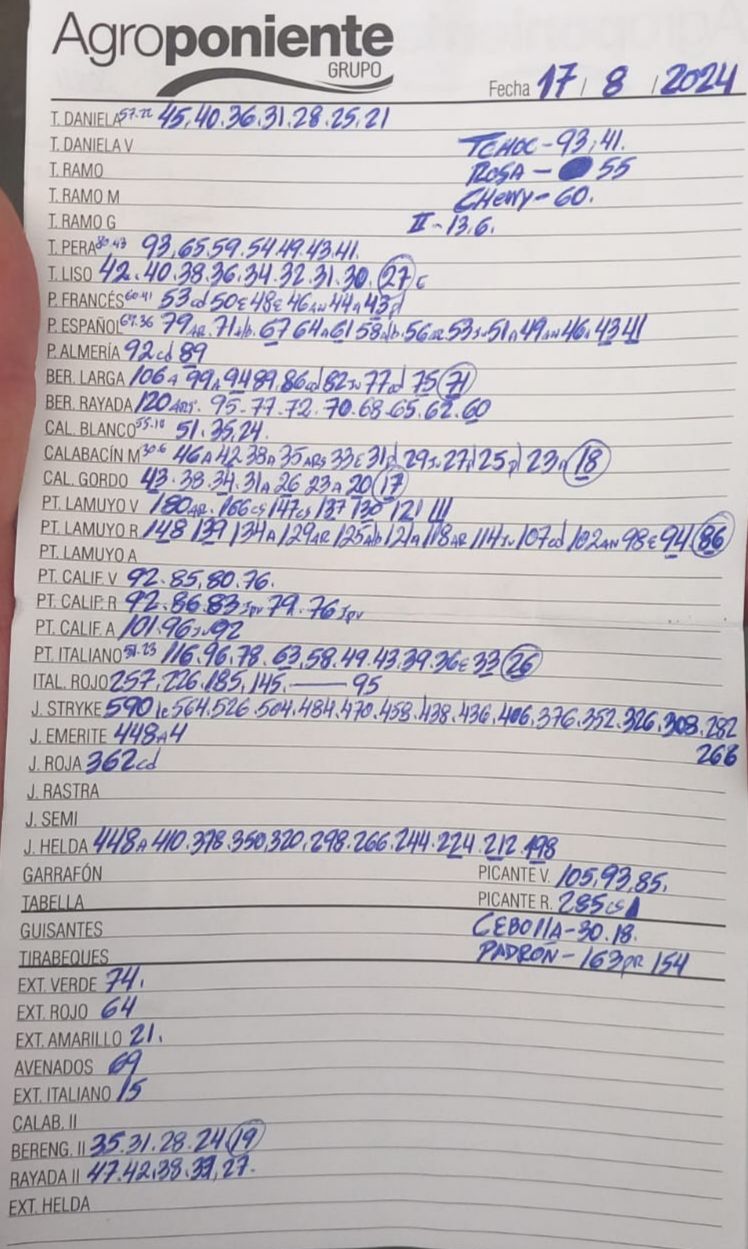 Agroponiente
GRUPO
Fecha 17 / 8 / 2024
T. DANIELA 57-22 45,40.36.31.28.25.21
T. DANIELA V TCHOC-93,41.
T. RAMO ROSA - 55
T. RAMO M CHerry-60.
T. RAMO G II-13.6.
T. PERA 80-43 93,65.59.54.49.43.41.
T. LISO 42.40.38.36.34.32.31.30.27 c
P. FRANCÉS 60-41 53cd 50E 48E 46AN 44A 43
P. ESPAÑOL 67-36 79AR. 71. 67 64A 61 58 56 53 51A 49AN 46A 43 41
P. ALMERÍA 92cd 89
BER. LARGA 106A 99A 94 89.86cd 82JN 77cd 75 71
BER. RAYADA 120ARS. 95-77-72.70-68-65.62.60
CAL. BLANCO 55-18 51.35,24.
CALABACÍN M 30-6 46A 42 38A 35ARS 33E 31 29 27 25 23 18
CAL. GORDO 43.38.34.31A 26 23A 20 17
PT. LAMUYO V 180AR. 166cs 147cs 137 130 121 111
PT. LAMUYO R 148 139 134A 129AR 125Ab 121A 118AR 114JN 107cd 102AN 98E 94 86
PT. LAMUYO A
PT. CALIF. V 92.85,80.76.
PT. CALIF. R 92.86.83Jpv 79.76Jpv
PT. CALIF. A 101.96JN 92
PT. ITALIANO 51-23 116,96,78.63,58.49.43.39.36E 33 26
ITAL. ROJO 257,226.185,145.——95
J. STRYKE 590 564.526.504.484.470.458.438.436,406,376.352.326.308.282
268
J. EMERITE 448A4
J. ROJA 362cd
J. RASTRA
J. SEMI
J. HELDA 448A 410.378.350,320,298.266.244.224.212.198
GARRAFÓN PICANTE V. 105,93,85,
TABELLA PICANTE R. 285cs
GUISANTES CEBOllA-30.18.
TIRABEQUES PADRÓN-163PR 154
EXT. VERDE 74.
EXT. ROJO 64
EXT. AMARILLO 21.
AVENADOS 69
EXT. ITALIANO 15
CALAB. II
BERENG. II 35.31.28.24 19
RAYADA II 47.42.38.32,27.
EXT. HELDA